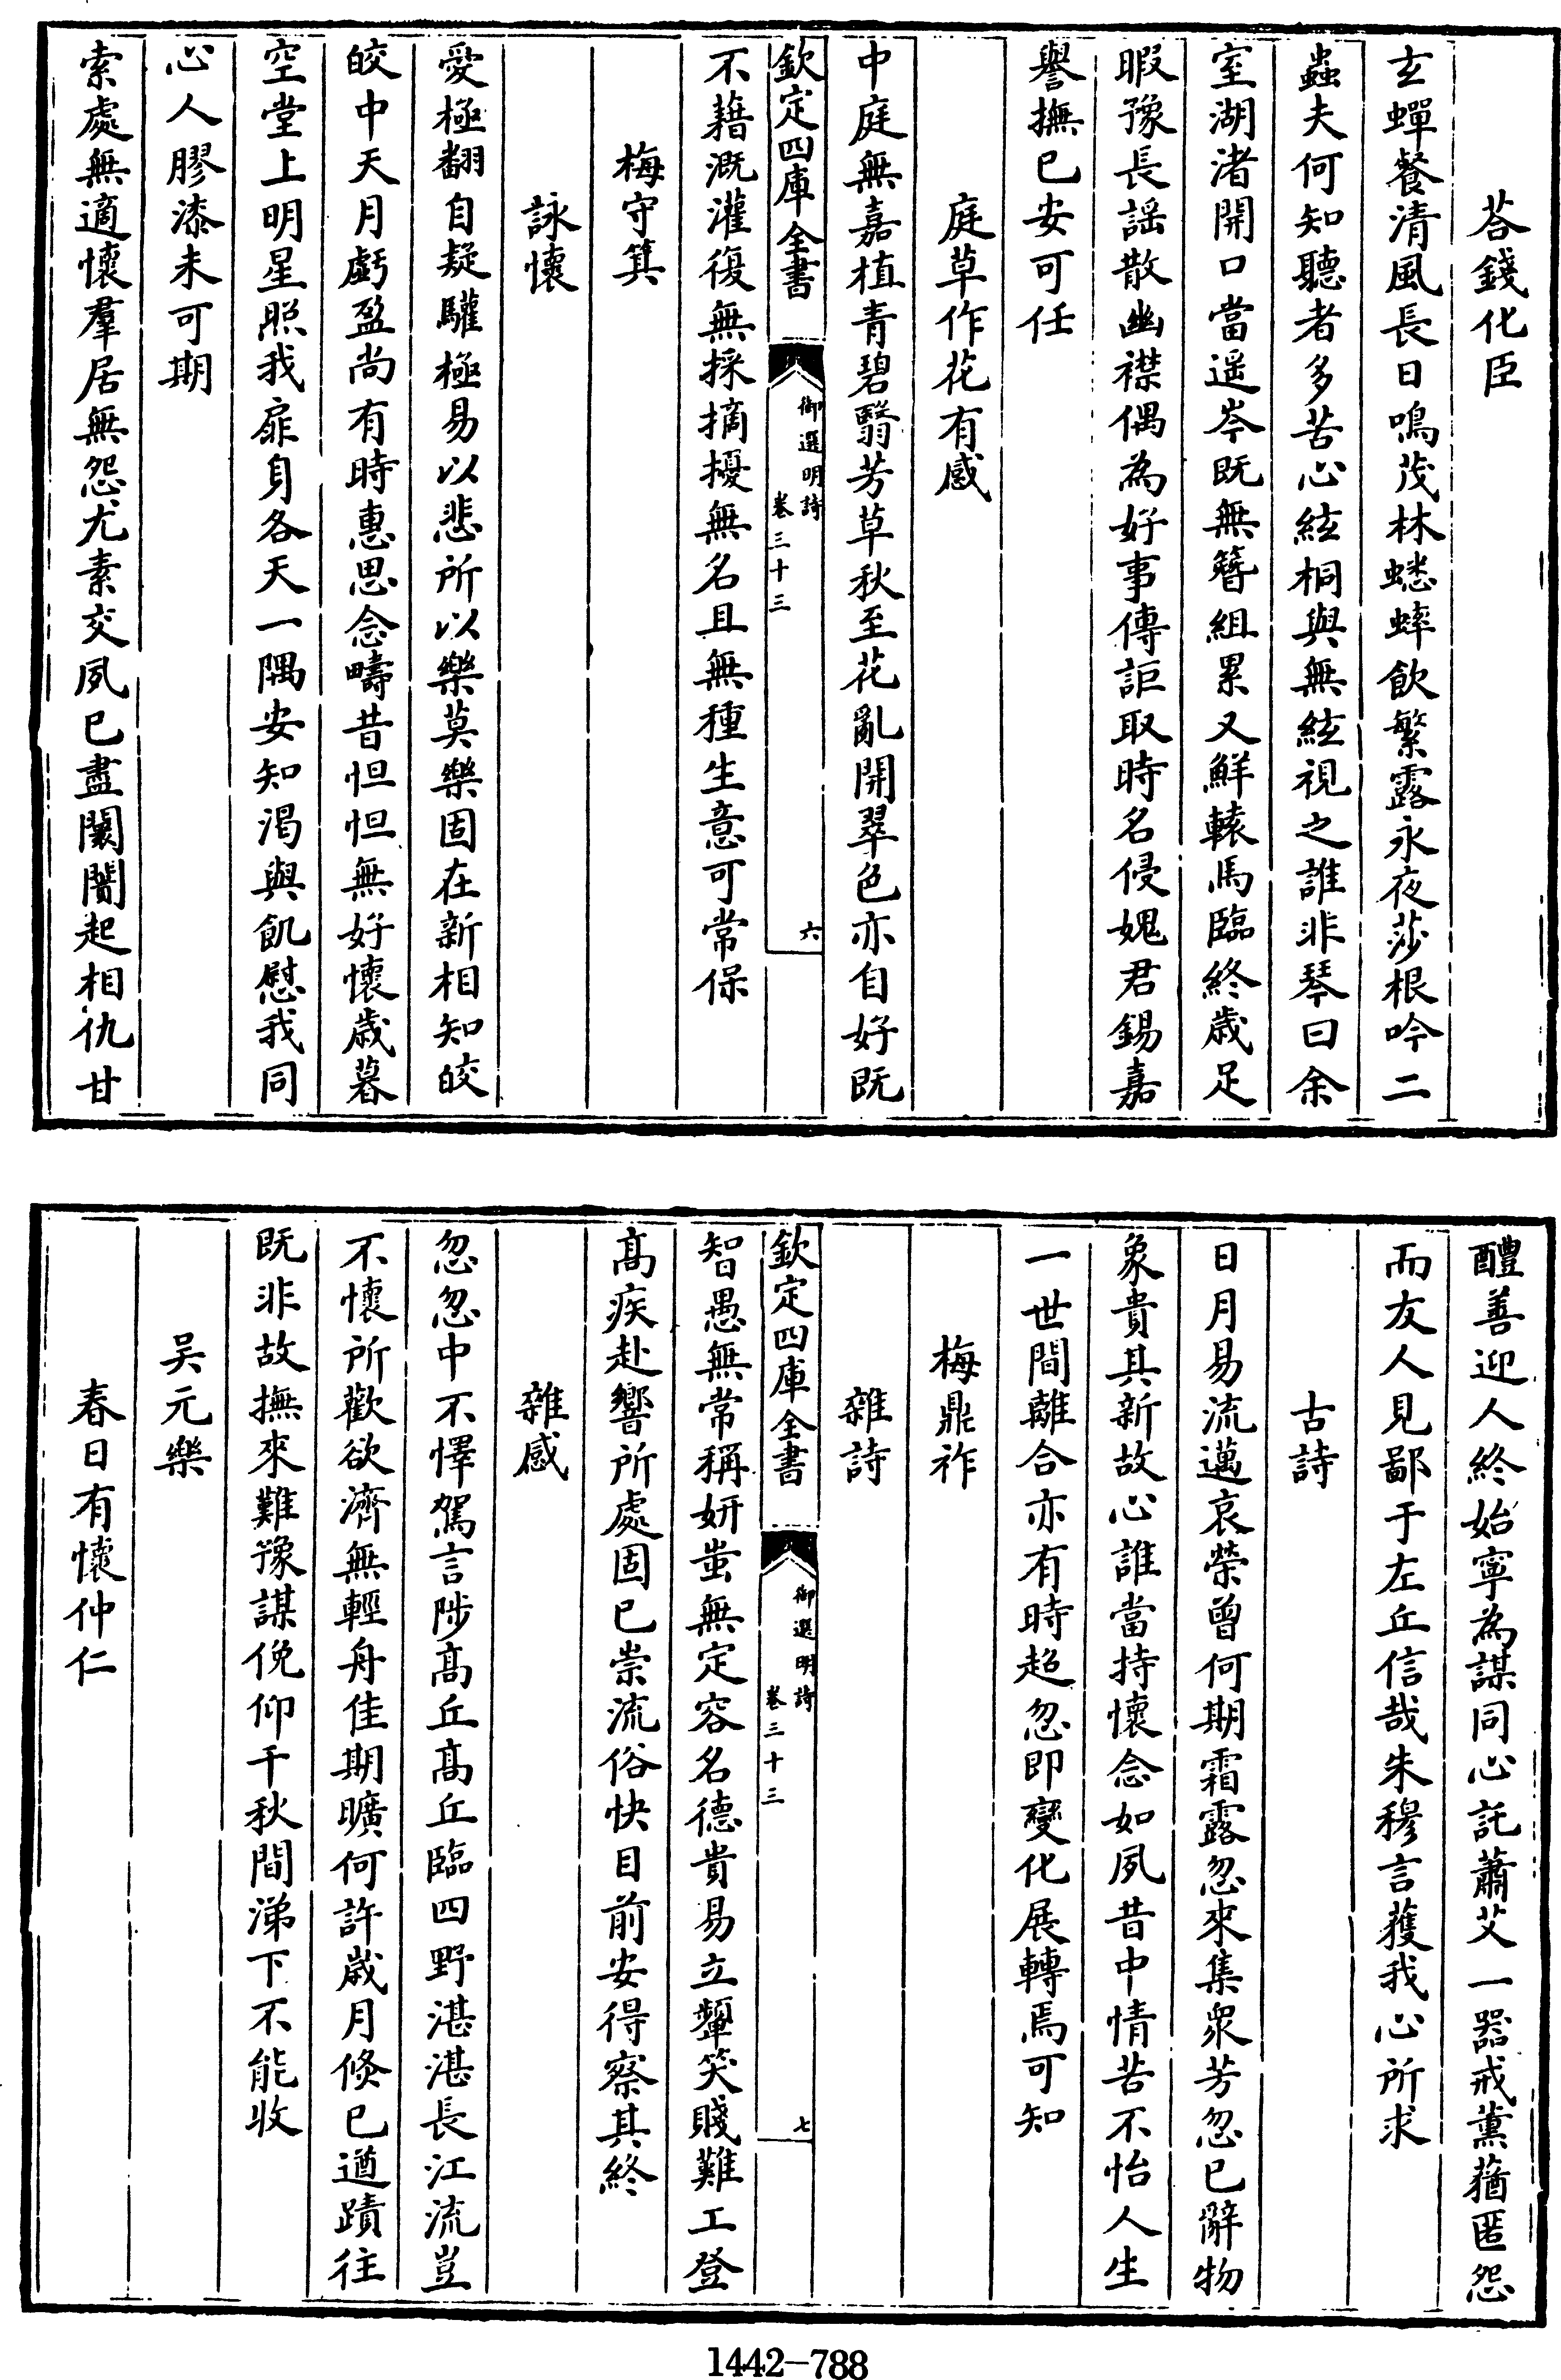 荅錢化臣
玄蟬餐清風長日鳴茂林蟋蟀飲繁露永夜莎根吟二
蟲夫何知聽者多苦心絃桐與無絃視之誰非琴曰余
室湖渚開口當遥岑既無簪組累又鮮轅馬臨終歳足
暇豫長謡散幽襟偶為好事傳詎取時名侵媿君錫嘉
譽撫已安可任
庭草作花有感
中庭無嘉植青碧翳芳草秋至花亂開翠色亦自好既
欽定四庫全書
御選明詩
卷三十三
六
不藉溉灌復無採摘擾無名且無種生意可常保
梅守箕
詠懷
愛極翻自疑驩極易以悲所以樂莫樂固在新相知皎
皎中天月虧盈尚有時惠思念疇昔怛怛無好懷歳暮
空堂上明星照我扉身各天一隅安知渴與飢慰我同
心人膠漆未可期
索處無適懷羣居無怨尤素交夙已盡闤闠起相仇甘
醴善迎人終始寧為謀同心託蕭艾一器戒薰蕕匿怨
而友人見鄙于左丘信哉朱穆言獲我心所求
古詩
日月易流邁哀榮曾何期霜露忽來集衆芳忽已辭物
象貴其新故心誰當持懷念如夙昔中情苦不怡人生
一世間離合亦有時超忽即變化展轉焉可知
梅鼎祚
雜詩
欽定四庫全書
御選明詩
卷三十三
七
智愚無常稱妍蚩無定容名德貴易立顰笑賤難工登
髙疾赴響所處固已崇流俗快目前安得察其終
雜感
忽忽中不懌駕言陟髙丘髙丘臨四野湛湛長江流豈
不懷所歡欲濟無輕舟佳期曠何許歳月倐已遒蹟往
既非故撫來難豫謀俛仰千秋間涕下不能收
吴元樂
春日有懷仲仁
1442-788